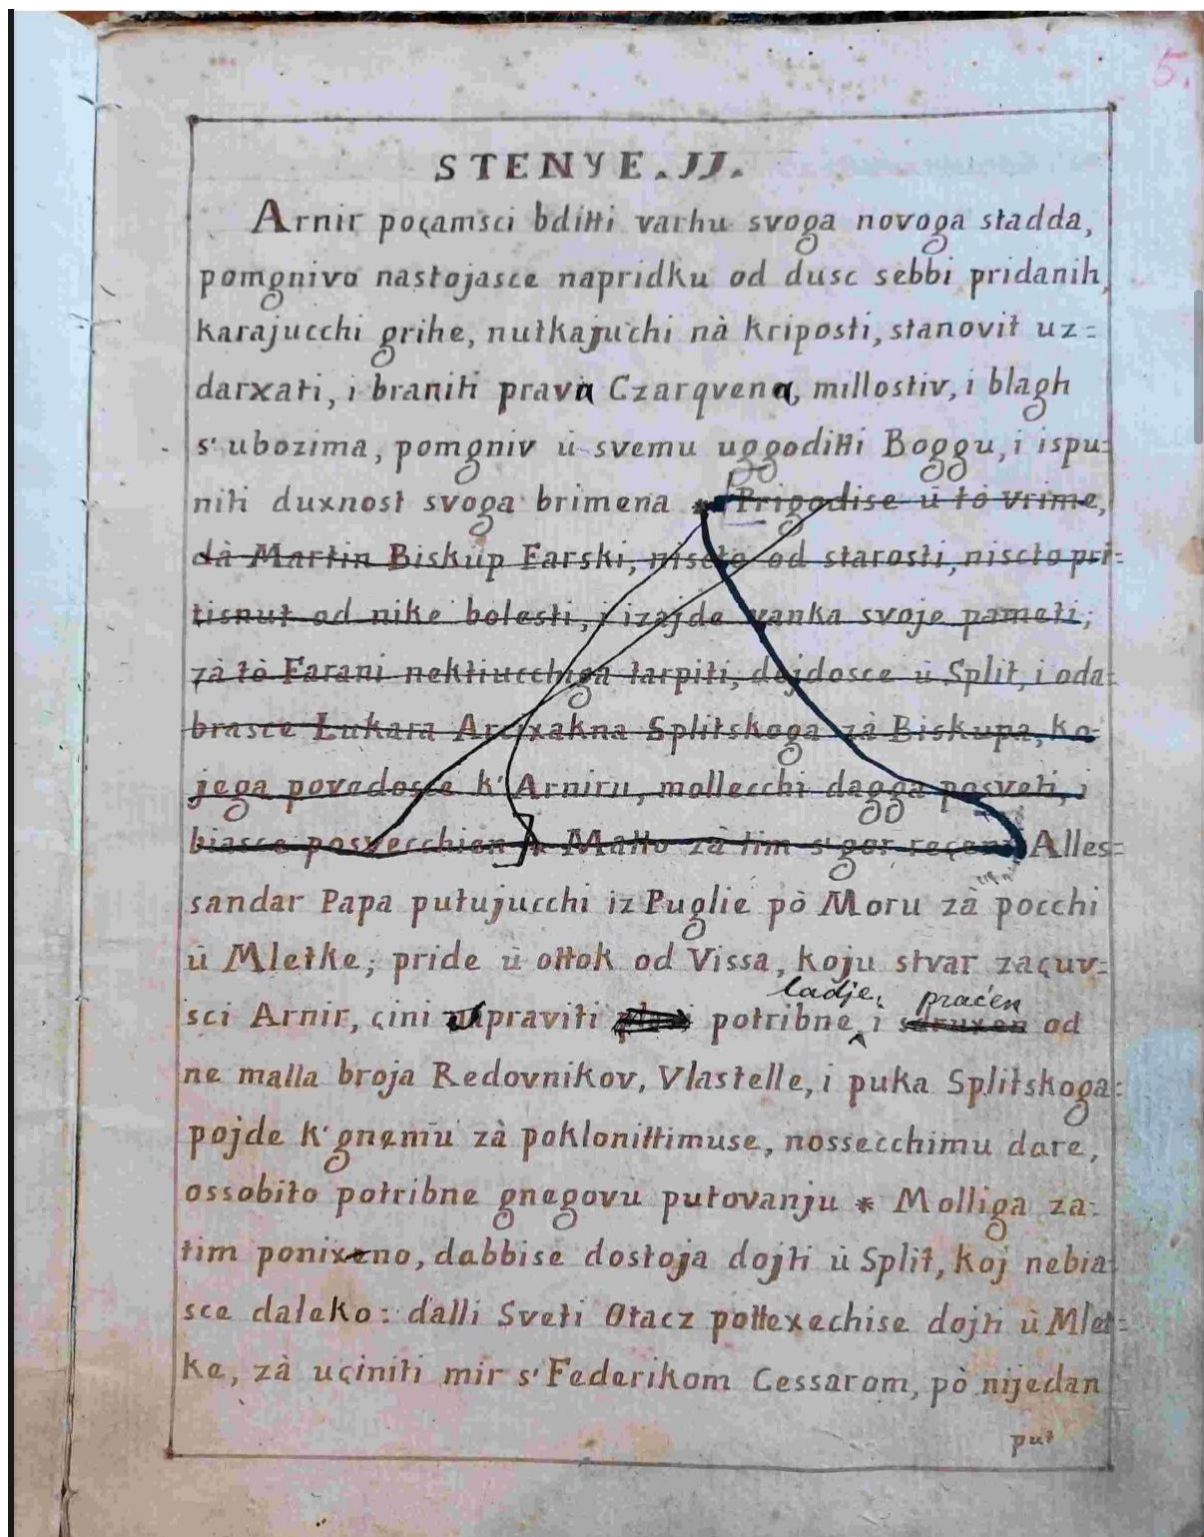 5.
STENYE.II.
Arnir poçamsci bditti varhu svoga novoga stadda,
pomgnivo nastojasce napridku od dusc sebbi pridanih,
karajucchi grihe, nutkajuchi nà kriposti, stanovit uz=
darxati, i braniti prava Czarqvena, millostiv, i blagh
s' ubozima, pomgniv ù svemu uggoditti Boggu, i ispu=
niti duxnost svoga brimena * [Prigodise ù tò vrime,
dà Martin Biskup Farski, niscto od starosti, niscto pri=
tisnut od nike bolesti, i izajde vanka svoje pameti;
zà tò Farani nektiucchiga tarpiti, dojdosce ù Split, i oda=
brasce Lukara Arcixakna Splitskoga zà Biskupa, ko=
jega povedosce k' Arniru, mollecchi dagga posveti, i
biasce posvecchien] * Mallo zà tim s' gor reçeni Alles=
sandar Papa putujucchi iz Puglie pò Moru zà pocchi
ù Mletke; pride ù ottok od Vissa, koju stvar zaçuv=
ladje, praćen
sci Arnir, çini praviti potribne, i sdruxen od
ne malla broja Redovnikov, Vlastelle, i puka Splitskoga=
pojde k' gnemu zà poklonittimuse, nossecchimu dare,
ossobito potribne gnegovu putovanju * Molliga za=
tim ponixeno, dabbise dostoja dojti ù Split, koj nebia=
sce daleko: dalli Sveti Otacz pottexechise dojti ù Mlet=
ke, zà uçiniti mir s' Federikom Cessarom, pò nijedan
put